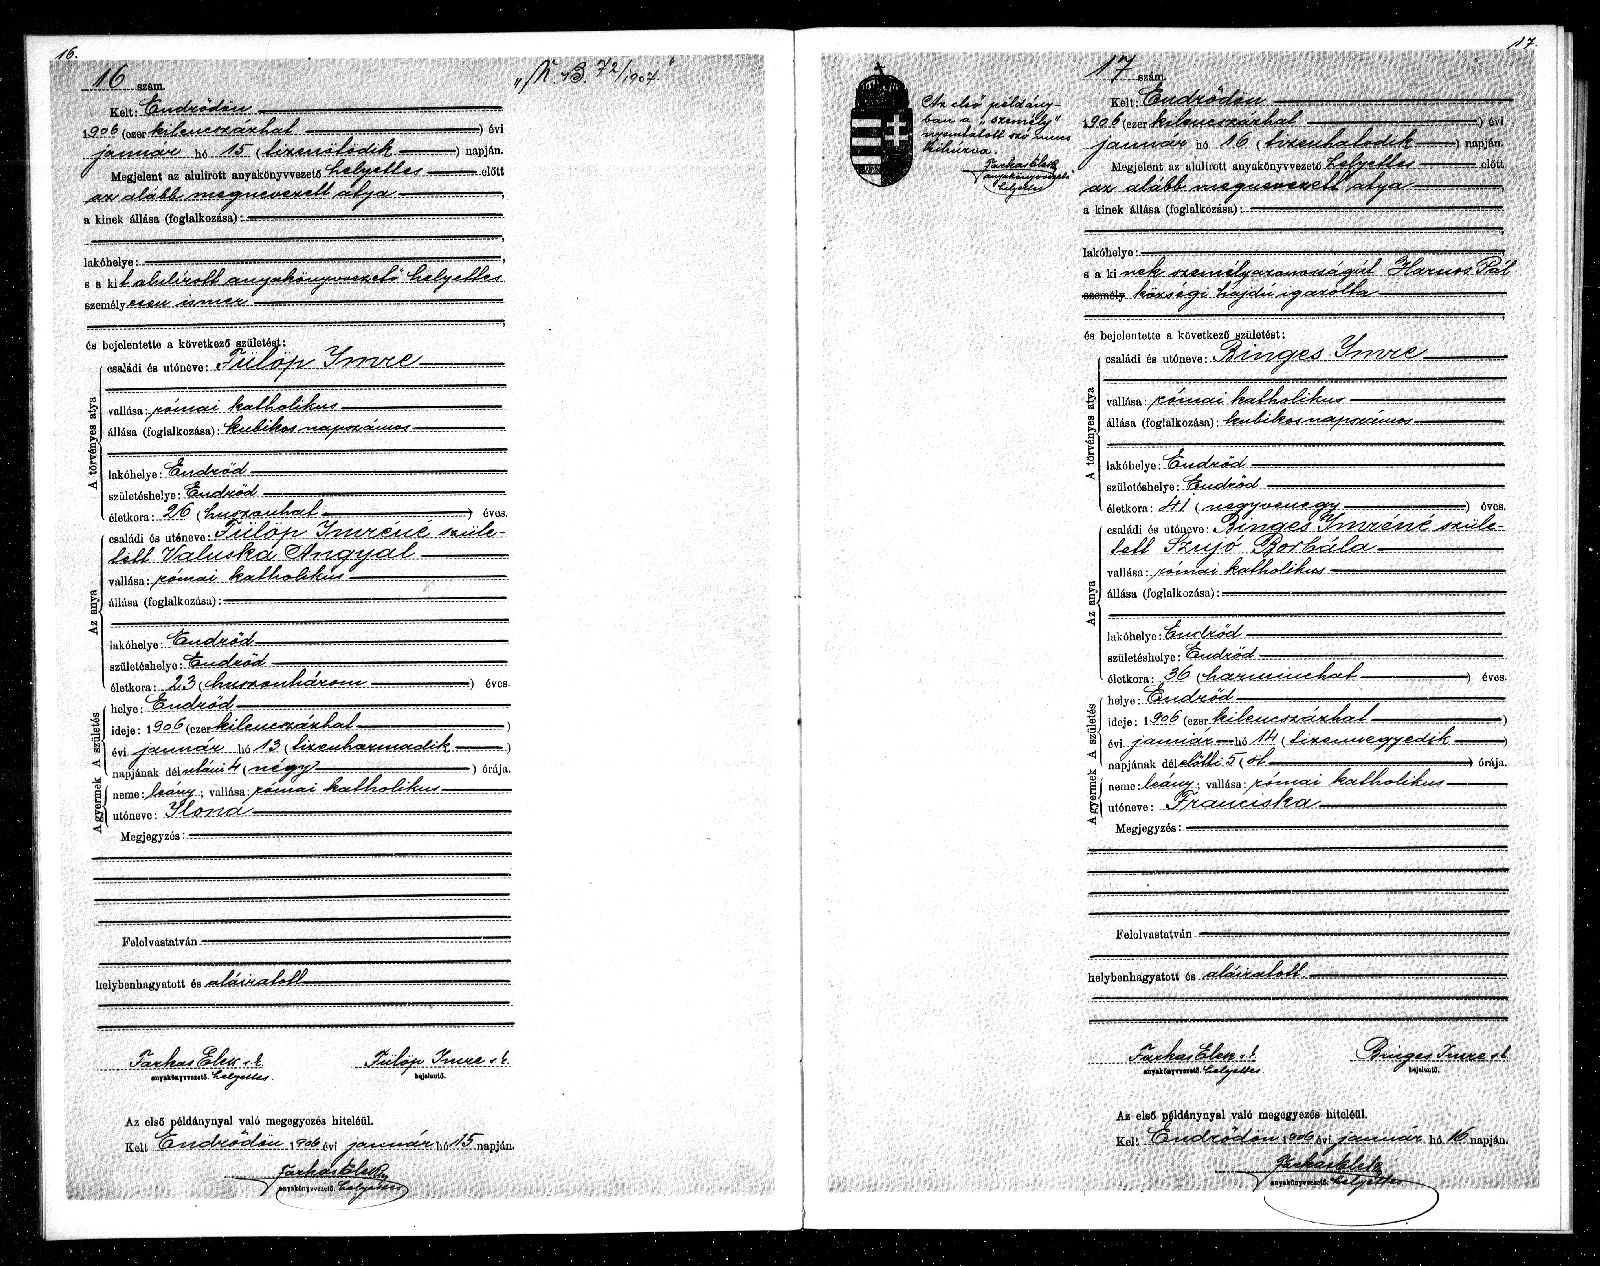 16.
16 szám.
"N B. 72/1907"
Kelt: Endrődön
1906 (ezer kilencszázhat) évi
január hó 15 (tizenötödik) napján.
Megjelent az alulirott anyakönyvvezető helyettes előtt
az alább megnevezett atya,
a kinek állása (foglalkozása):
lakóhelye:
s a kit alulírott anyakönyvvezető helyettes
személyesen ismer
és bejelentette a következő születést:
A törvényes atya
családi és utóneve: Fülöp Imre
vallása: római katholikus
állása (foglalkozása): kubikos napszámos
lakóhelye: Endrőd
születéshelye: Endrőd
életkora: 26 (huszonhat) éves.
Az anya
családi és utóneve: Fülöp Imréné szüle-
tett Valuska Angyal
vallása: római katholikus
állása (foglalkozása):
lakóhelye: Endrőd
születéshelye: Endrőd
életkora: 23 (huszonhárom) éves.
A születés
helye: Endrőd
ideje: 1906 (ezer kilencszázhat)
évi január hó 13 (tizenharmadik)
napjának délutáni 4 (négy) órája.
A gyermek
neme: leány; vallása: római katholikus
utóneve: Ilona
Megjegyzés:
Felolvastatván
helybenhagyatott és aláiratott
Farkas Elek s. k. Fülöp Imre s. k.
anyakönyvvezető. helyettes. bejelentő.
Az első példánynyal való megegyezés hiteléül.
Kelt Endrődön 1906 évi január hó 15 napján.
Farkas Elek
anyakönyvvezető. helyettes
17.
17 szám.
Az első példány-
ban a "személy"
nyomtatott szó nincs
kihúzva.
Farkas Elek
anyakönyvvezető
helyettes
Kelt: Endrődön
1906 (ezer kilencszázhat) évi
január hó 16 (tizenhatodik) napján.
Megjelent az alulirott anyakönyvvezető helyettes előtt
az alább megnevezett atya
a kinek állása (foglalkozása):
lakóhelye:
s a kinek személyazonosságát Harnos Pál
személy községi hajdú igazolta
és bejelentette a következő születést:
A törvényes atya
családi és utóneve: Binges Imre
vallása: római katholikus
állása (foglalkozása): kubikos napszámos
lakóhelye: Endrőd
születéshelye: Endrőd
életkora: 41 (negyvenegy) éves.
Az anya
családi és utóneve: Binges Imréné szüle-
tett Szujó Borbála
vallása: római katholikus
állása (foglalkozása):
lakóhelye: Endrőd
születéshelye: Endrőd
életkora: 36 (harminchat) éves.
A születés
helye: Endrőd
ideje: 1906 (ezer kilencszázhat)
évi január hó 14 (tizennegyedik)
napjának délelőtti 5 (öt) órája.
A gyermek
neme: leány; vallása: római katholikus
utóneve: Franciska
Megjegyzés:
Felolvastatván
helybenhagyatott és aláiratott.
Farkas Elek s. k. Binges Imre s. k.
anyakönyvvezető. helyettes. bejelentő.
Az első példánynyal való megegyezés hiteléül.
Kelt Endrődön 1906 évi január hó 16 napján.
Farkas Elek
anyakönyvvezető. helyettes